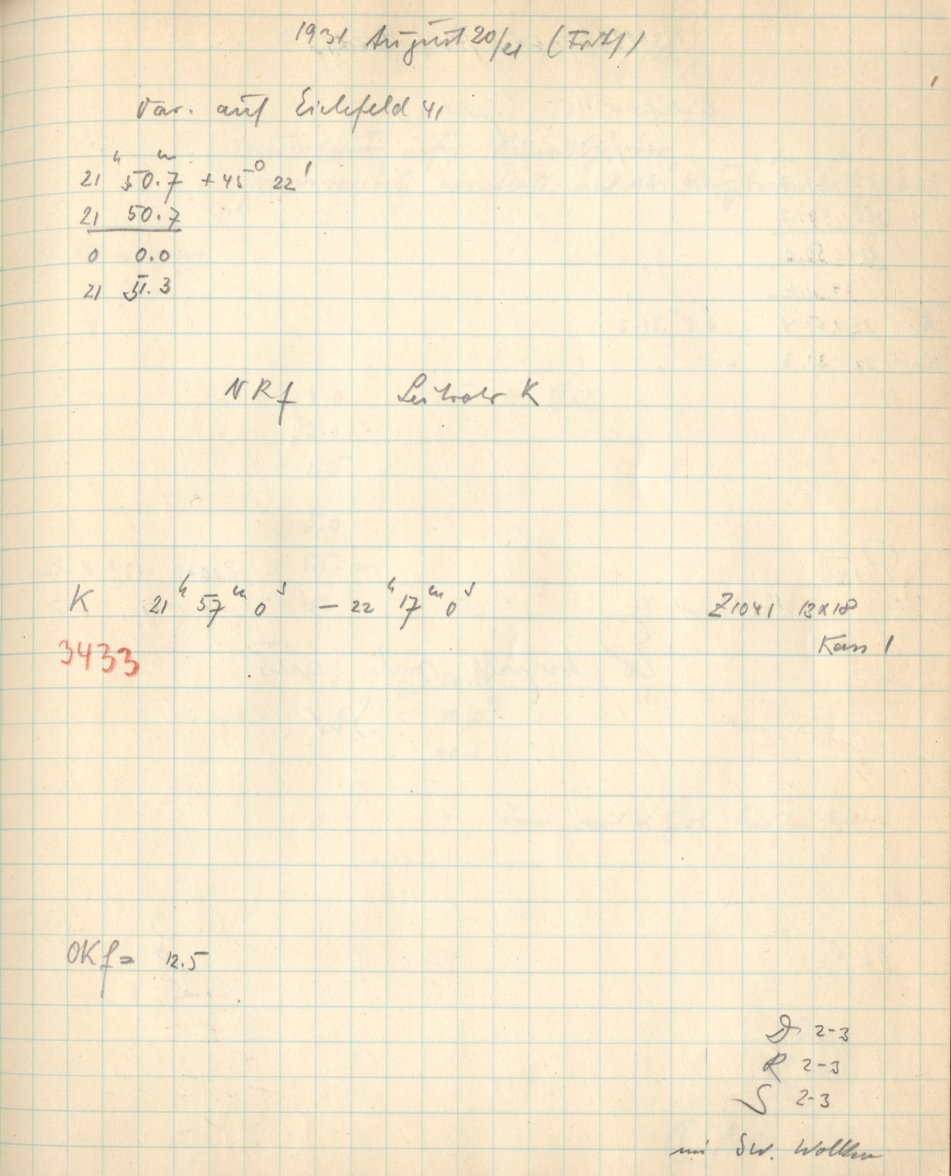 1931 August 20/21 (Früh)
Var. auf Eichfeld 41
21 h 50.7 m +45° 22'
21 50.7
0 0.0
21 51.3
NRf Leitrohr K
K 21 h 57 m 0 s – 22 h 17 m 0 s Z1041 13x18
Kass 1
3433
OKf = 12.5
D 2-3
R 2-3
S 2-3
im SW. Wolken